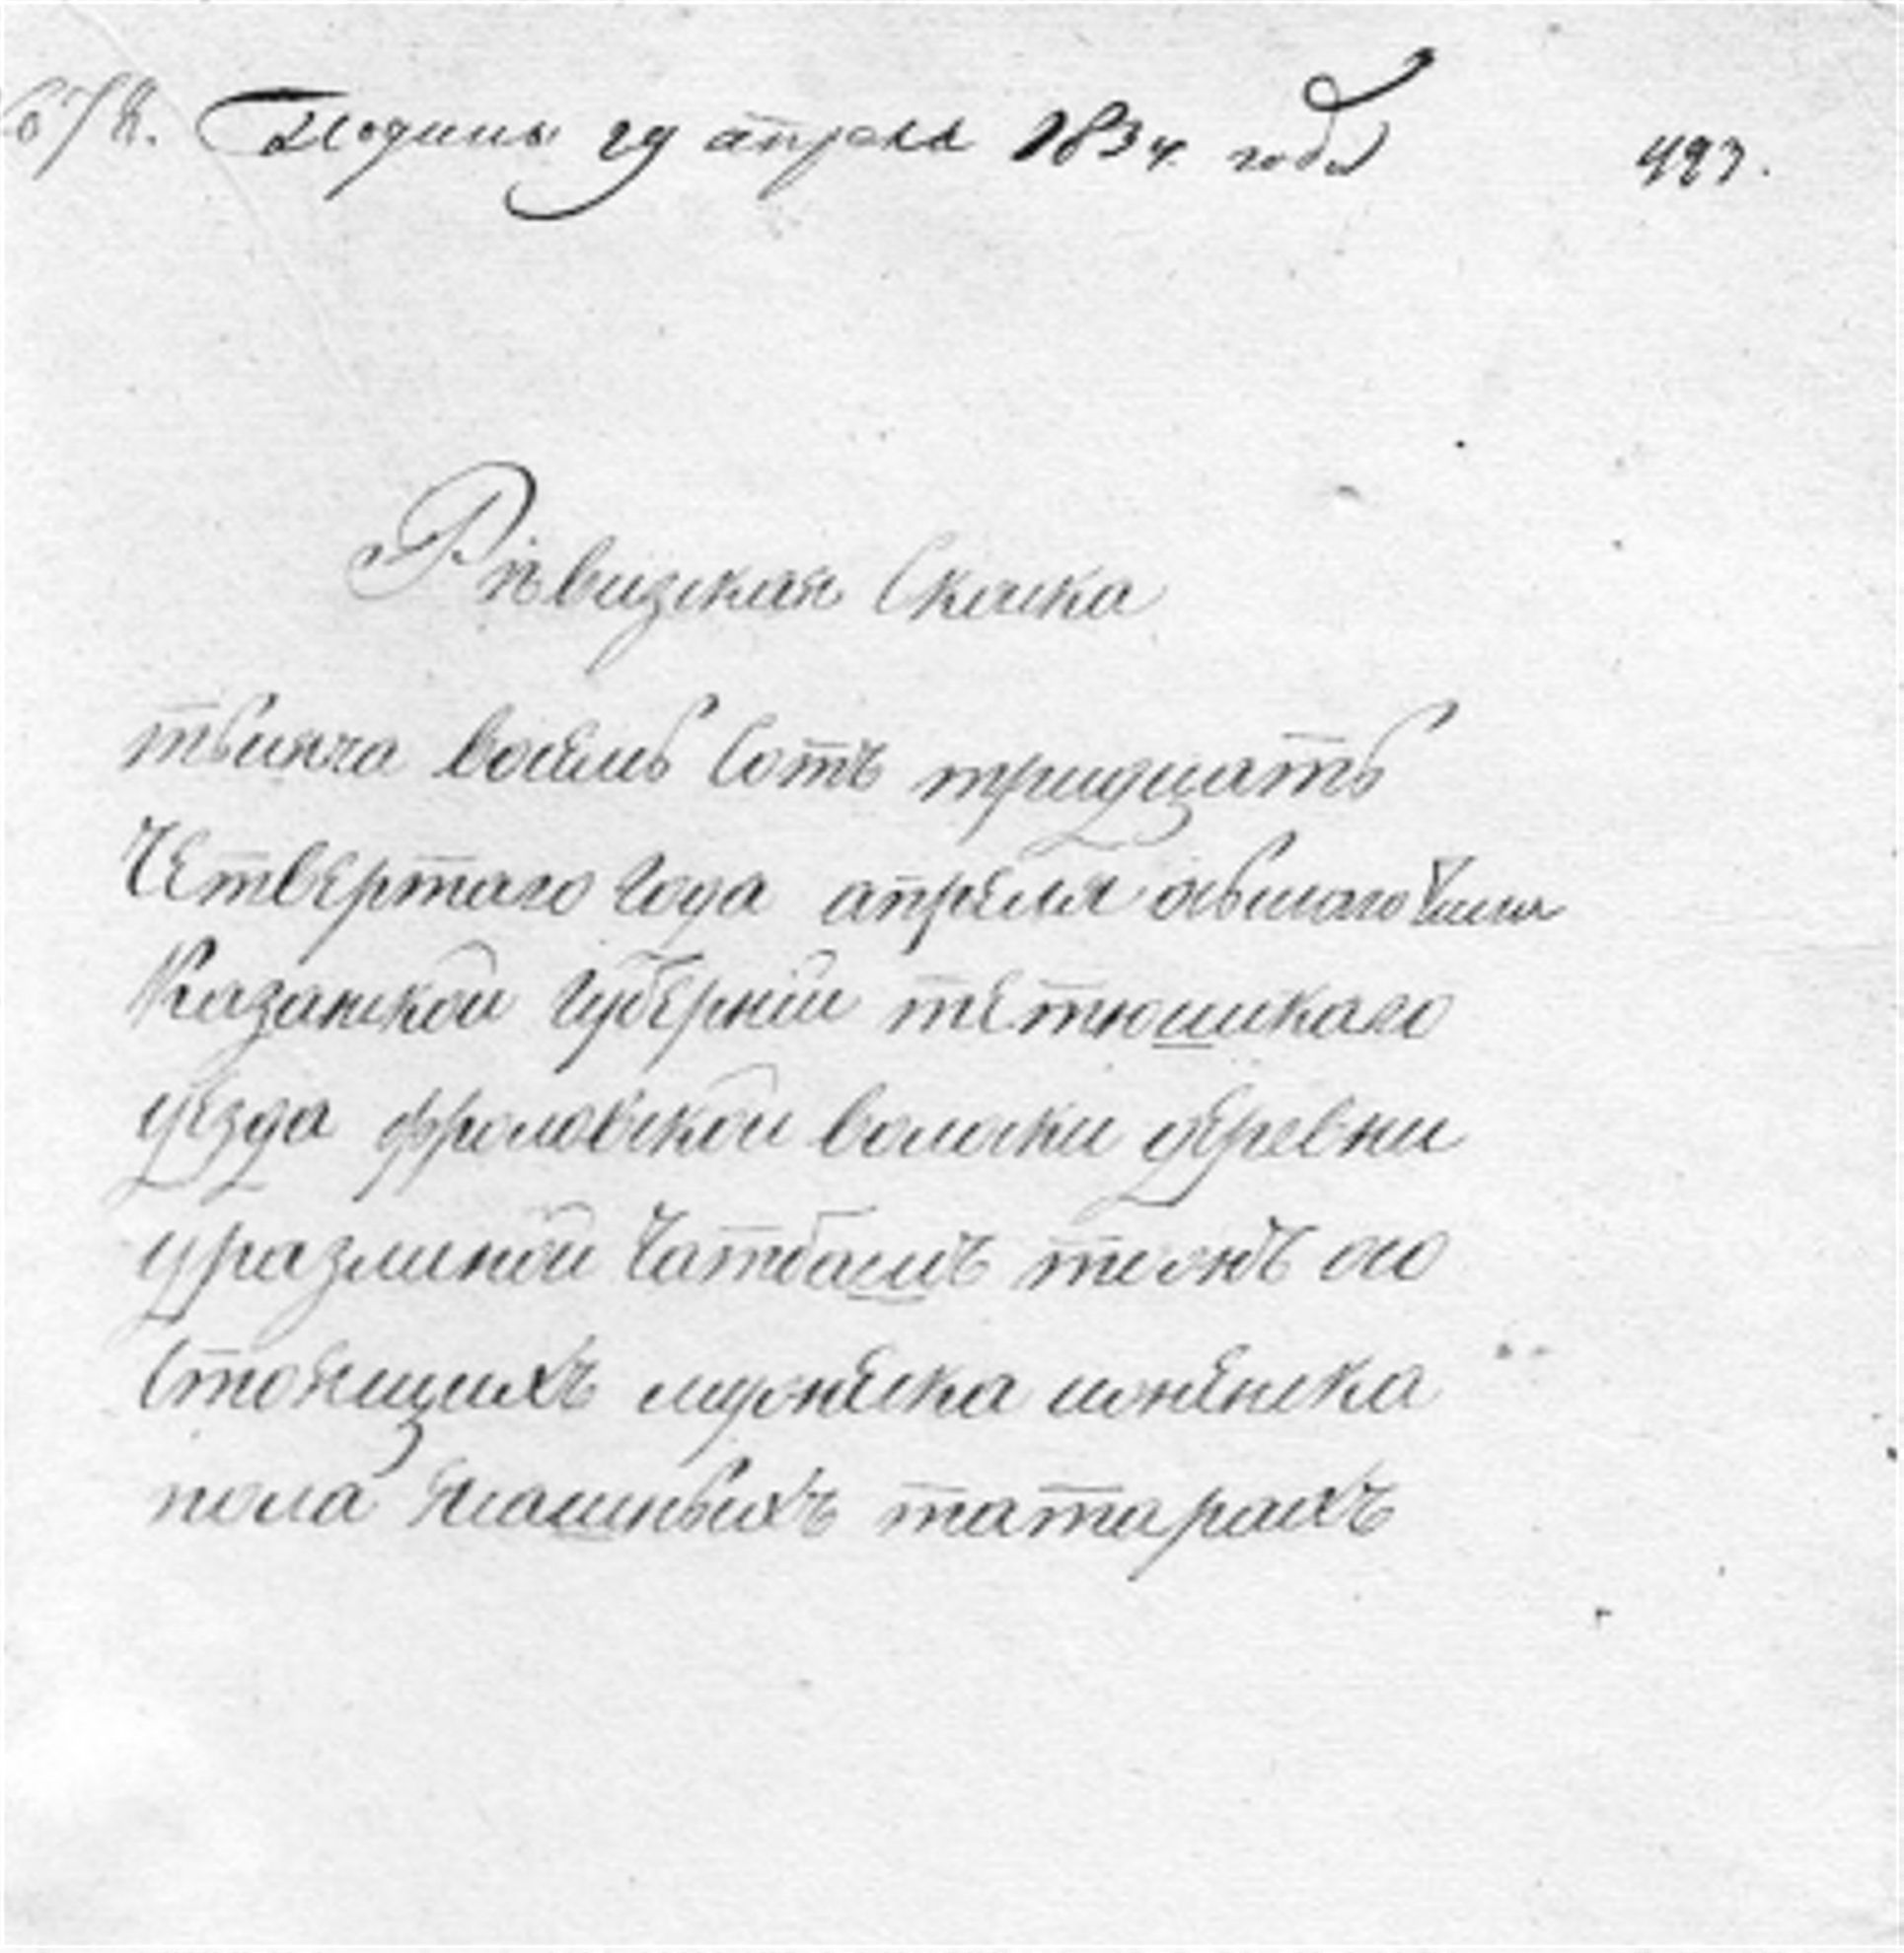 29 апреля 1834 года
Ревизская Сказка
тысяча восемь Сотъ тридцать
Четвертаго года апреля осьмаго Числа
Казанской губернии тетюшскаго
уезда фроловской волости деревни
уразлиной Чатбашъ тожъ со
Стоящихъ мужеска ионенска
пола ясашныхъ татарахъ